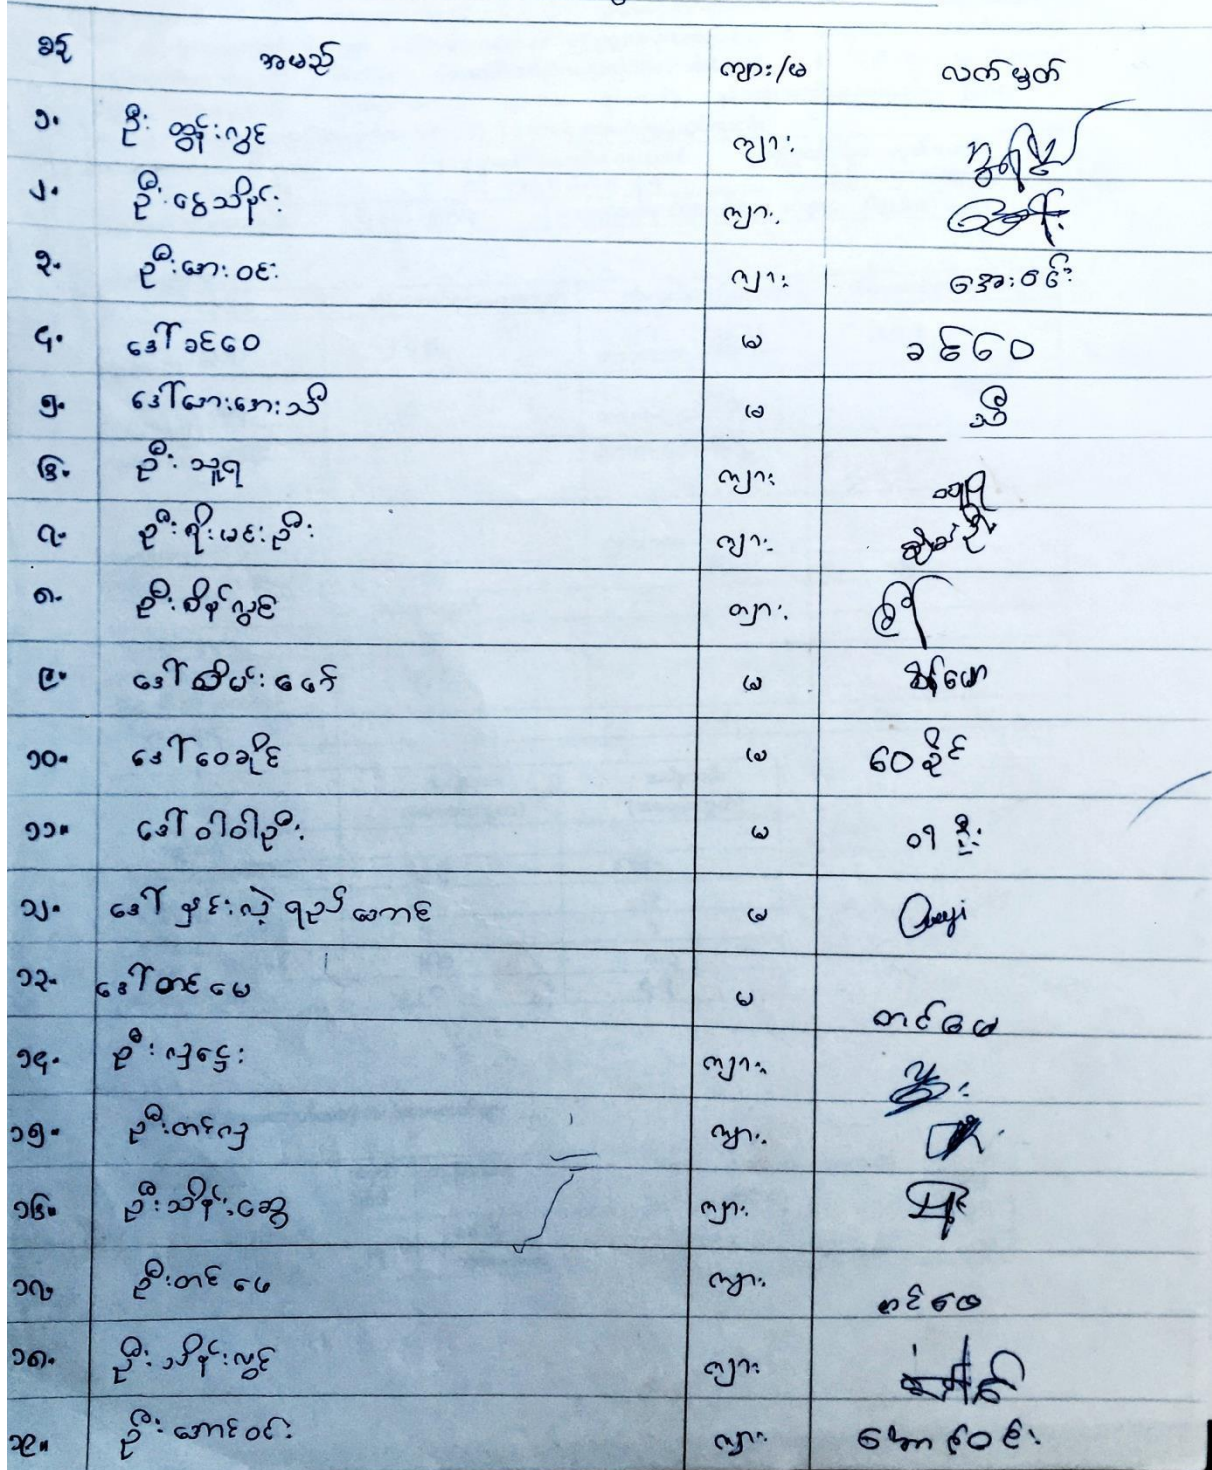 စဉ် အမည် ကျား/မ လက်မှတ်
၁။ ဦးထွန်းလွင် ကျား
၂။ ဦးငွေသိန်း ကျား
၃။ ဦးအေးဝင်း ကျား အေးဝင်း
၄။ ဒေါ်ခင်ဝေ မ ခင်ဝေ
၅။ ဒေါ်အေးအေးသီ မ သီ
၆။ ဦးသူရ ကျား သူရ
၇။ ဦးစိုးမင်းဦး ကျား
၈။ ဦးစိန်လွင် ကျား
၉။ ဒေါ်သိမ်းဖော် မ
၁၀။ ဒေါ်ဝေခိုင် မ ဝေခိုင်
၁၁။ ဒေါ်ဝါဝါဦး မ ဝါဦး
၁၂။ ဒေါ်နှင်းလဲ့ရည်အောင် မ
၁၃။ ဒေါ်တင်မေ မ တင်မေ
၁၄။ ဦးလှဌေး ကျား
၁၅။ ဦးတင်လှ ကျား
၁၆။ ဦးသိန်းဆွေ ကျား
၁၇။ ဦးတင်ဖေ ကျား တင်ဖေ
၁၈။ ဦးသိန်းလွင် ကျား
၁၉။ ဦးအောင်ဝင်း ကျား အောင်ဝင်း